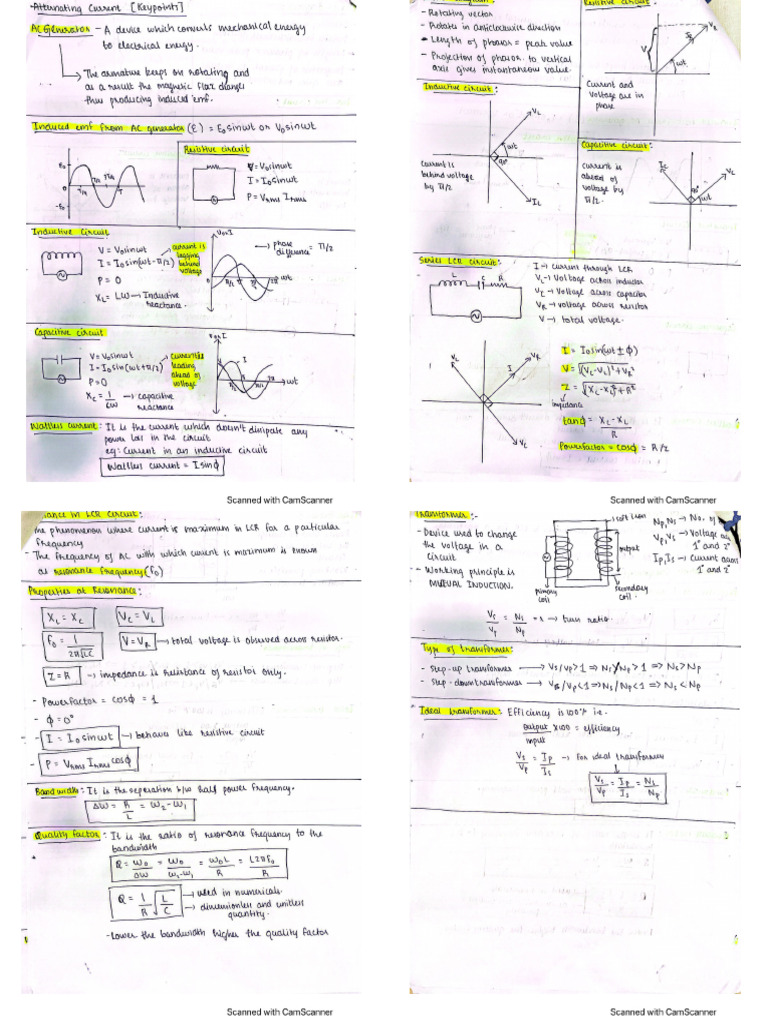 -Alternating Current [Keypoints]
AC Generator - A device which converts mechanical energy
to electrical energy.
→ The armature keeps on rotating and
as a result the magnetic flux changes
thus producing induced emf.
Induced emf from AC generator (ε) = E₀sinωt or V₀sinωt
Resistive circuit
V = V₀sinωt
I = I₀sinωt
P = Vrms Irms
Inductive Circuit
V = V₀sinωt
I = I₀sin(ωt-π/2)
P = 0
XL = LW → Inductive
reactance.
→ current is
lagging
behind
voltage
V or I
→ phase
difference = π/2
ωt
Capacitive circuit
V = V₀sinωt
I = I₀sin(ωt+π/2)
P = 0
Xc = 1/CW → capacitive
reactance
leading
ahead of
voltage
I
ωt
Wattless current: It is the current which doesn't disipate any
power loss in the circuit
eg: Current in an inductive circuit
Wattless current = I sinϕ
Scanned with CamScanner
- Rotating vector
- Rotates in anticlockwise direction
- Length of phasor = peak value
- Projection of phasor to vertical
axis gives instantaneous value.
Resistive circuit:
Current and
voltage are in
phase
Inductive circuit:
current is
behind voltage
by π/2
VL
ωt
90°
IL
Capacitive circuit:
current is
ahead of
voltage by
π/2.
Series LCR circuit:
L C R
I → current through LCR
VL → Voltage across inductor
Vc → Voltage across capacitor
VR → voltage across resistor
V → total voltage.
I = I₀sin(ωt ± ϕ)
V = √(Vc-VL)²+VR²
Z = √(XL-Xc)²+R²
impedance
tanϕ = Xc-XL/R
Powerfactor = cosϕ = R/Z
Scanned with CamScanner
in LCR circuit:
phenomenon where current is maximum in LCR for a particular
frequency
- The frequency of AC with which current is maximum is known
as resonance frequency (f₀)
Properties at Resonance:
XL = Xc
Vc = VL
f₀ = 1/2π√LC
V = VR → total voltage is observed across resistor.
Z = R → impedance is resistance of resistor only.
- Powerfactor = cosϕ = 1
- ϕ = 0°
- I = I₀sinωt → behaves like resistive circuit
- P = Vrms Irms cosϕ
Bandwidth: It is the separation b/w half power frequency.
ΔW = R/L = W₂-W₁
Quality factor: It is the ratio of resonance frequency to the
bandwidth
Q = W₀/ΔW = W₀/W₂-W₁ = W₀L/R = L2πf₀/R
Q = 1/R √L/C → used in numericals.
→ dimensionless and unitless
quantity.
-Lower the bandwidth higher the quality factor
Scanned with CamScanner
Transformer:-
- Device used to change
the voltage in a
circuit
- Working principle is
MUTUAL INDUCTION.
soft iron
output
primary
coil
secondary
coil.
Np,Ns → No. of
Vp,Vs → Voltage
1° and 2°
Ip,Is → Current
1° and 2°
Vs/Vp = Ns/Np = r → turn ratio.
Type of transformer:
- step-up transformer → Vs/Vp>1 ⇒ Ns/Np>1 ⇒ Ns>Np
- step-down transformer → Vs/Vp<1 ⇒ Ns/Np<1 ⇒ Ns<Np
Ideal transformer: Efficiency is 100% i.e.
output/input ×100 = efficiency
Vs/Vp = Ip/Is → For ideal transformer
Vs/Vp = Ip/Is = Ns/Np
Scanned with CamScanner